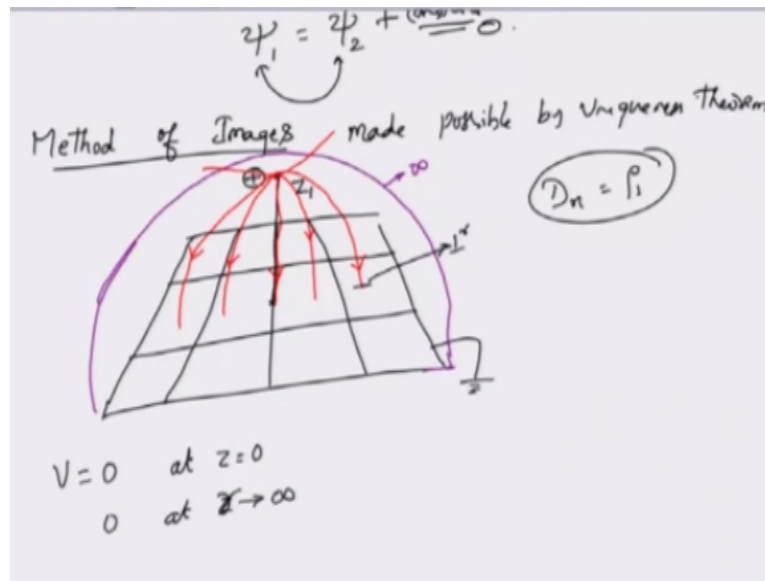 Ψ₁ = Ψ₂ + constant 0.
Method of Images made possible by Uniqueness Theorem
Dₙ = ρₛ
⊕ z₁
∞
V = 0 at z = 0
0 at r → ∞